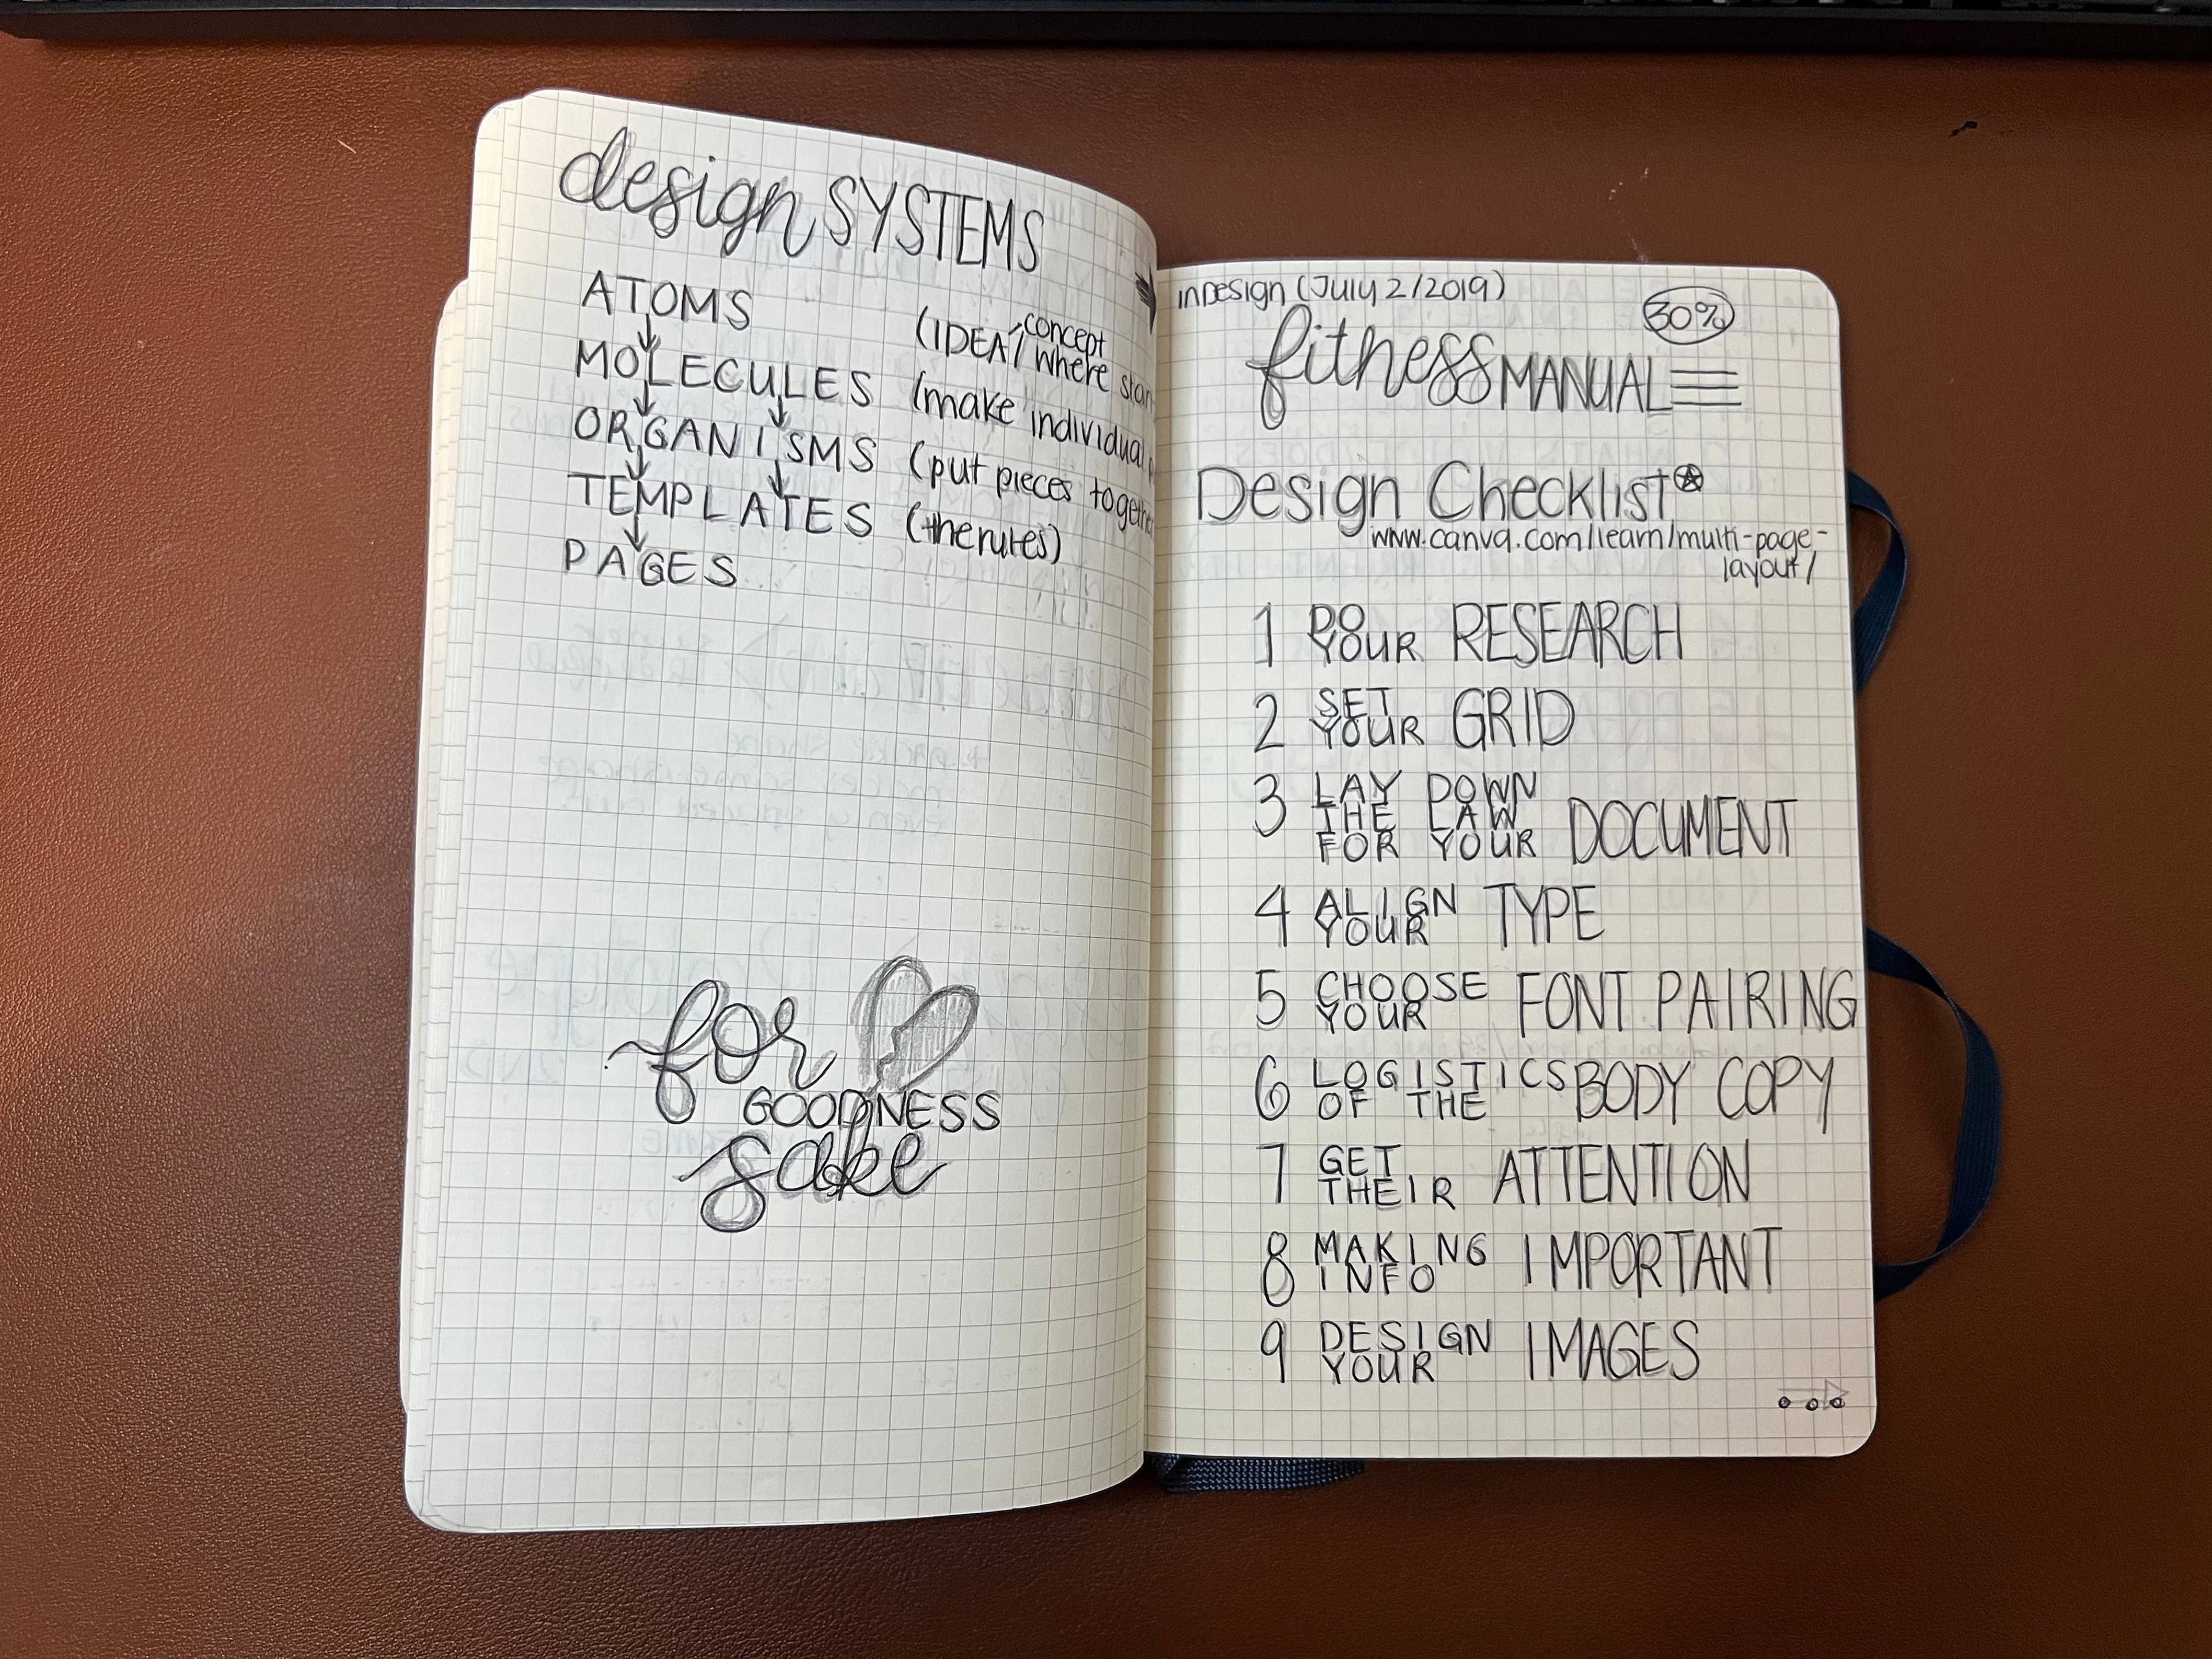 design SYSTEMS
ATOMS
concept
(IDEA/ where
MOLECULES (make individual
ORGANISMS (put pieces
TEMPLATES (the rules)
PAGES
for
GOODNESS
sake
INDesign (July 2/2019)
30%
fitness MANUAL
Design Checklist
www.canva.com/learn/multi-page-
layout/
1 DO
YOUR RESEARCH
2 SET
YOUR GRID
3 LAY DOWN
THE LAW
FOR YOUR DOCUMENT
4 ALIGN
YOUR TYPE
5 CHOOSE
YOUR FONT PAIRING
6 LOGISTICS
OF THE BODY COPY
7 GET
THEIR ATTENTION
8 MAKING
INFO IMPORTANT
9 DESIGN
YOUR IMAGES